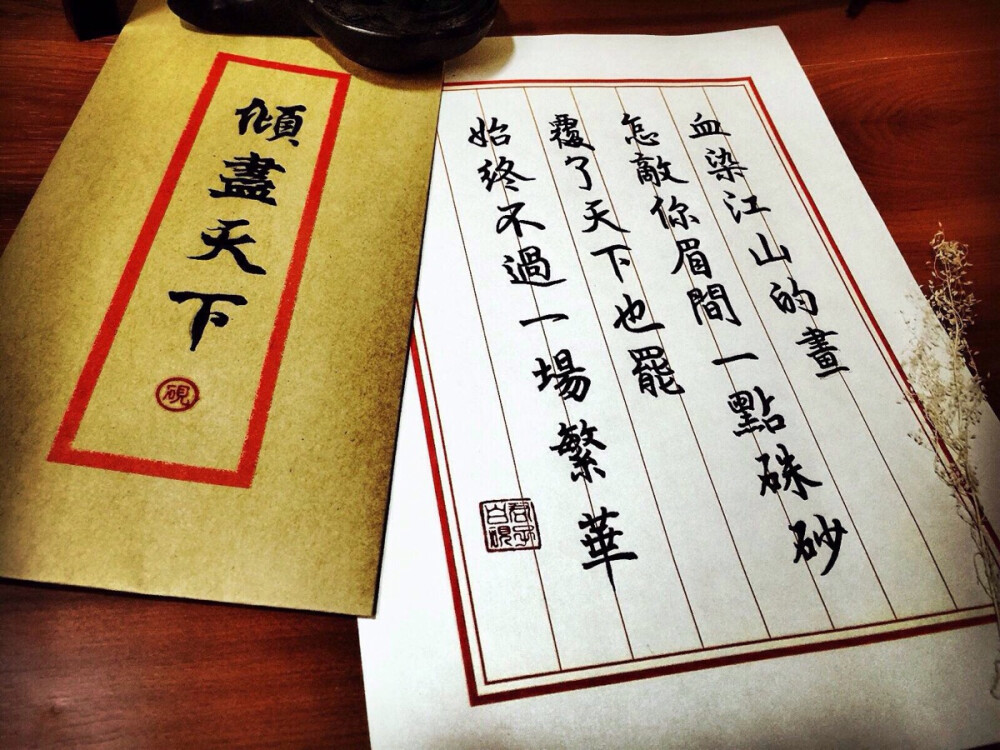 傾盡天下
硯
血染江山的畫
怎敵你眉間一點硃砂
覆了天下也罷
始終不過一場繁華
君子
白硯